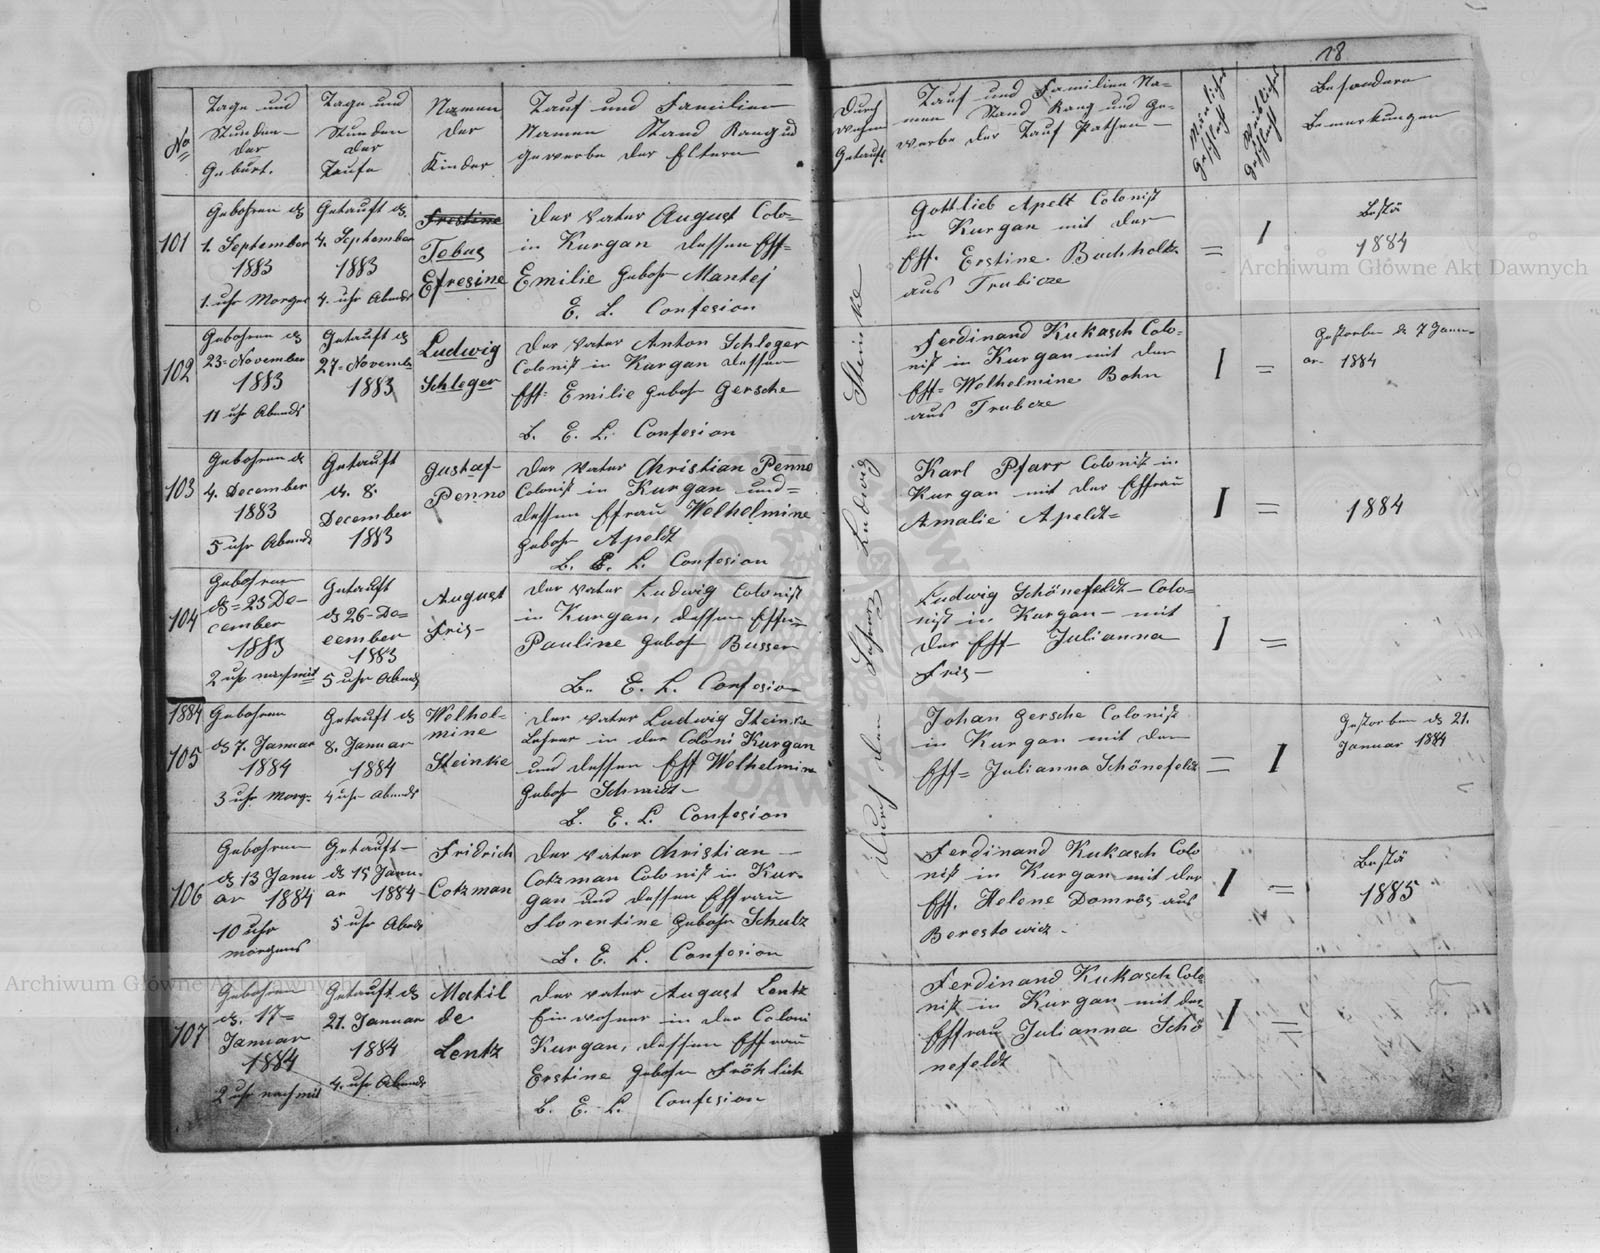 18
No
Tage und
Stunden
der
Geburt.
Tage und
Stunden
der
Taufe
Namen
der
Kinder
Tauf und Familien
Namen Stand Rang ud
Gewerbe der Eltern
Durch
wehm
Getauft
Tauf und Familien Na=
men Stand Rang und Ge=
werbe der Tauf Pathen
Mänliches
Geschlecht
Weibliches
Geschlecht
Besondere
Bemerkungen
101
Gebohren ds
1. September
1883
1. uhr Morgens
Getauft ds.
4. September
1883
4. uhr Abends
Tobus
Efresine
Der Vater August Colo=
in Kurgan dessen Eff=
Emilie Gebohr Mantej
E. L. Confesion
Gottlieb Apelt Colonist
in Kurgan mit der
Eff. Erstine Buchholtz
aus Trubicze
=
1
Bestä
1884
102
Gebohren ds
23= November
1883
11 uhr Abends
Getauft ds
27= Novemb.
1883
Ludwig
Schleger
Der Vater Anton Schleger
Colonist in Kurgan dessen
Eff= Emilie Gebohr Gersche
B. E. L. Confesion
Ferdinand Kukasch Colo=
nist in Kurgan mit der
Eff= Wolhelmine Bohn
aus Trubcze
1
=
Gestorben ds 7 Janu=
ar 1884
103
Gebohren ds
4. December
1883
5 uhr Abends
Getauft
ds. 8.
December
1883
Gustaf=
Penno
Der Vater Christian Penno
Colonist in Kurgan und=
dessen Efrau Wolhelmine
Gebohr Apeldt
B. E. L. Confesion
Karl Pfarr Colonist in
Kurgan mit der Effrau
Amalie Apeldt=
1
=
1884
104
Gebohren
ds=23 De=
cember
1883
2 uhr nachmit
Getauft
ds 26= De=
cember
1883
5 uhr Abends
August
Fris=
Der Vater Ludwig Colonist
in Kurgan, dessen Effr=
Pauline Gebohr Busser
B. E. L. Confesion
Ludwig Schönefeldt= Colo=
nist in Kurgan= mit
der Eff= Julianna
Fris=
1
=
1884
105
Gebohren
ds 7. Januar
1884
3 uhr Morg=
Getauft ds
8. Januar
1884
4 uhr Abends
Wolhel=
mine
Steinke
Der Vater Ludwig Steinke
Lehrer in der Coloni Kurgan
und dessen Eff Wolhelmine
Gebohr Schmidt=
B. E. L. Confesion
Johan Gersche Colonist
in Kurgan mit der
Eff= Julianna Schönefeldt
=
1
Gestorben ds 21.
Januar 1884
106
Gebohren
ds 13 Janu
ar 1884
10 uhr
morgens
Getauft=
ds 15 Janu=
ar 1884
5 uhr Abends
Fridrich
Cotzman
Der Vater Christian
Cotzman Colonist in Kur=
gan und dessen Effrau
Florentine Gebohr Schulz
B. E. L. Confesion
Ferdinand Kukasch Colo
nist in Kurgan mit der
Eff. Helene Domres aus
Berestowicz=
1
=
Bestä
1885
107
Gebohren
ds. 17=
Januar
1884
2 uhr nachmit
Getauft ds
21. Januar
1884
4. uhr Abends
Matil
de
Lentz
Der Vater August Lentz
Einwohner in der Coloni
Kurgan, dessen Effrau
Erstine Gebohr Fröhlich
B. E. L. Confesion
Ferdinand Kukasch Colo
nist in Kurgan mit der
Effrau Julianna Schö
nefeldt
1
=
Durch den Lehrer Ludwig Steinke
Archiwum Główne Akt Dawnych
Archiwum Główne Akt Dawnych